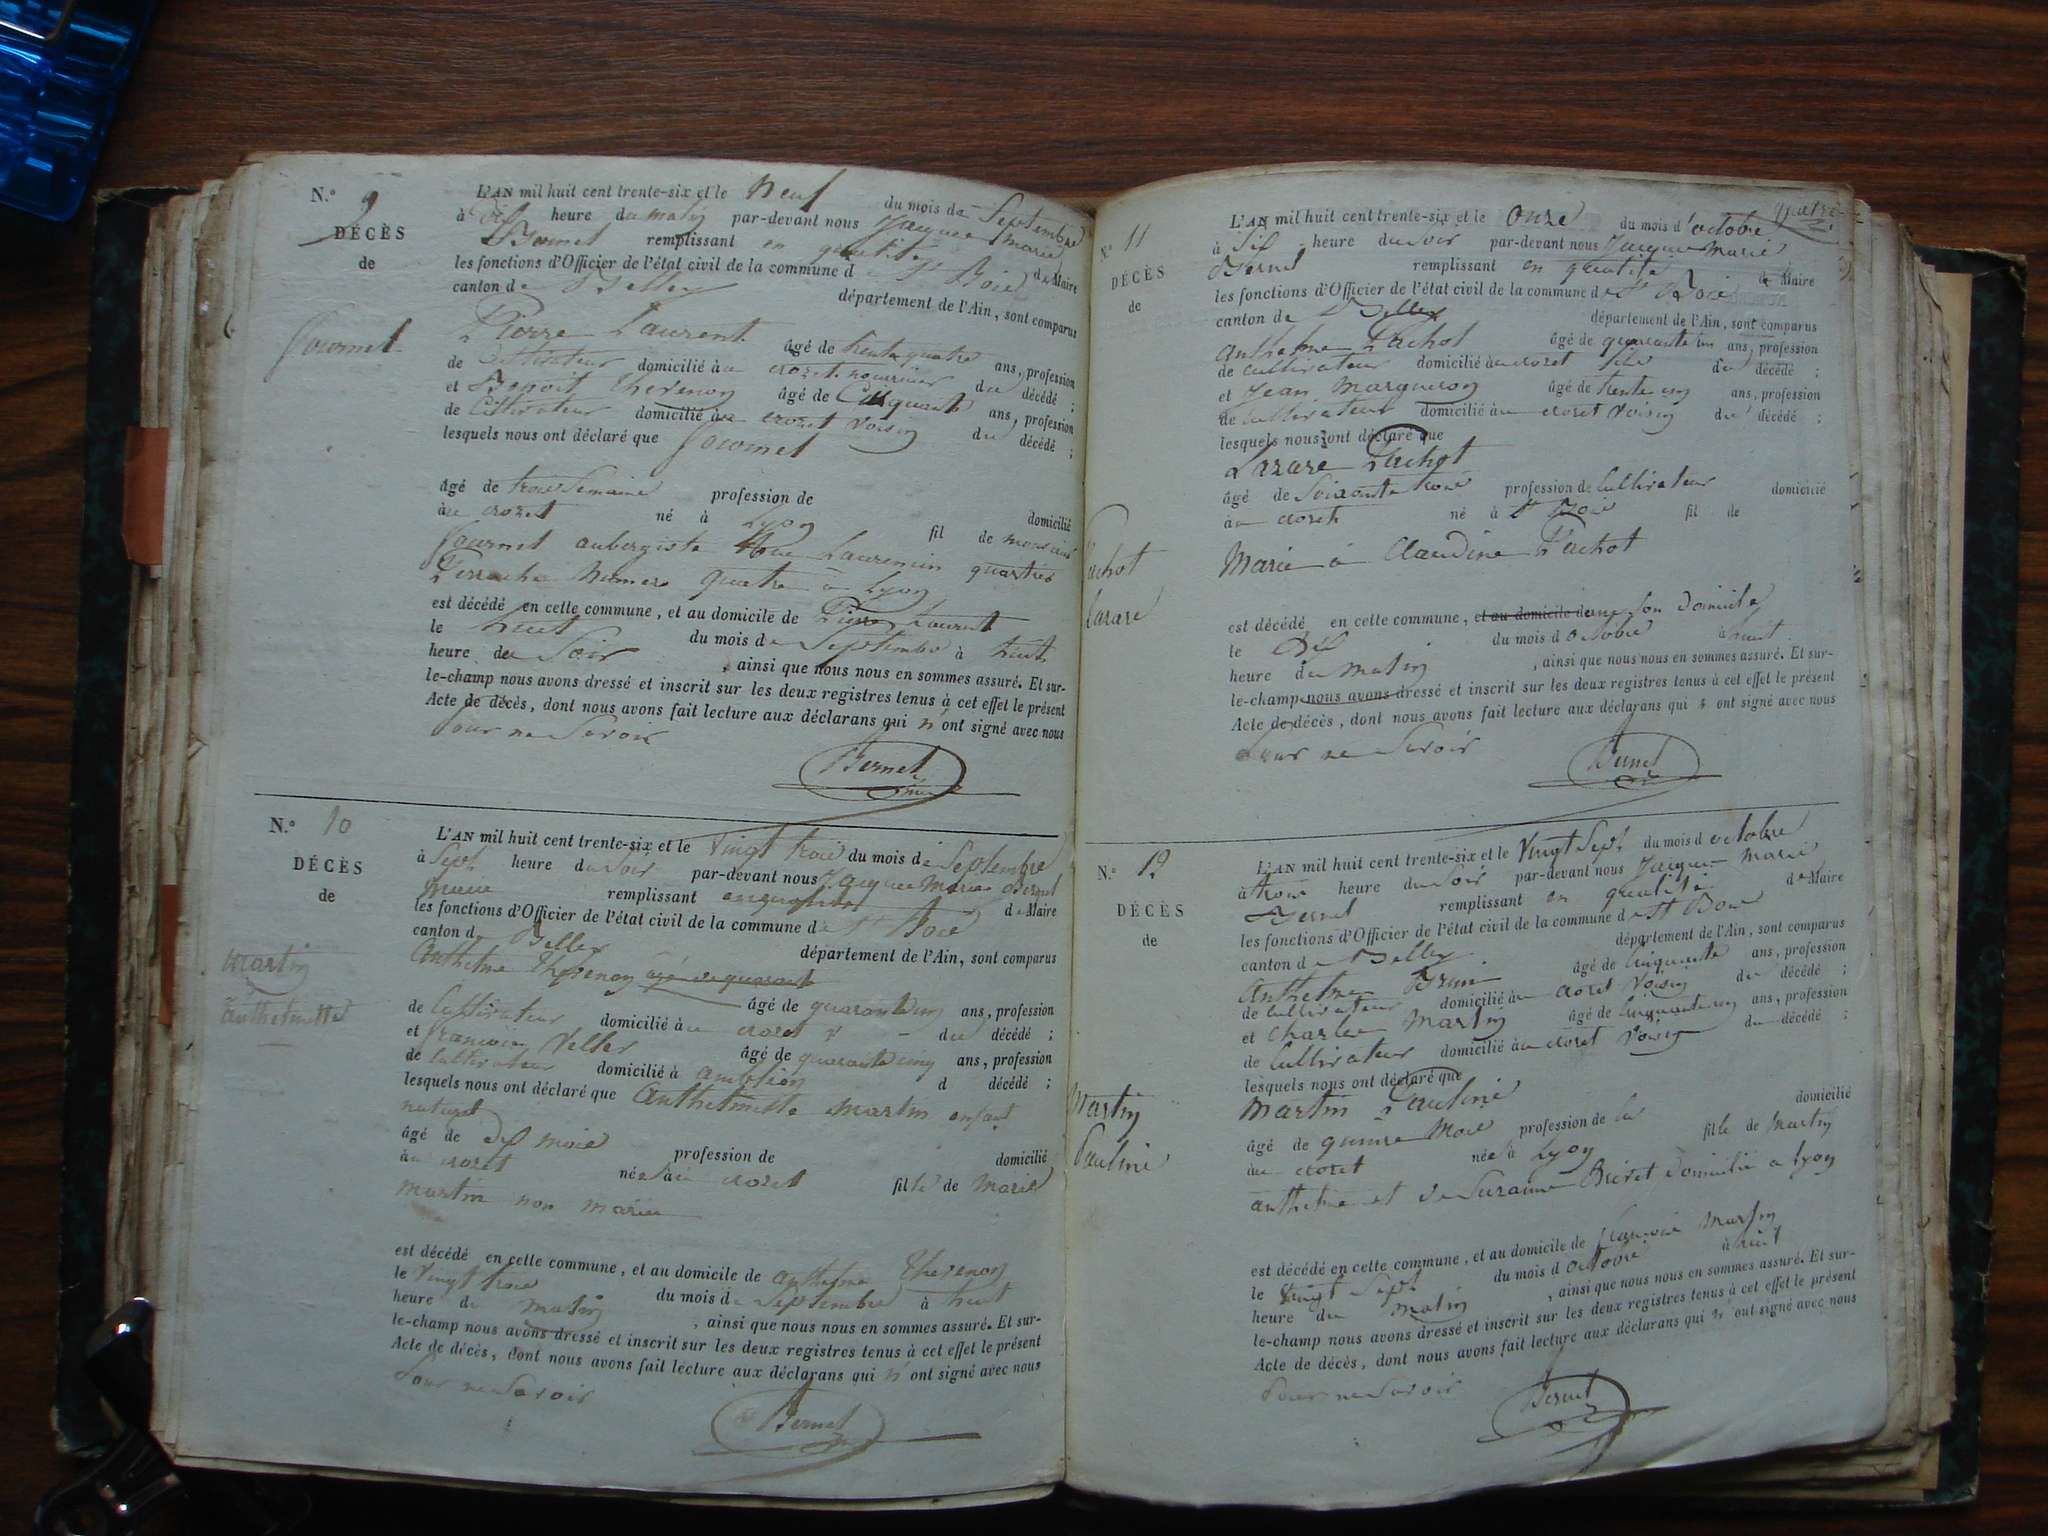 N.° 9
DÉCÈS
de
Gournet
L'AN mil huit cent trente-six et le neuf du mois de Septembre
à dix heure du matin par-devant nous Jacques Marie
Bernet remplissant en qualité de Maire
les fonctions d'Officier de l'état civil de la commune de St Boie
canton de Belley département de l'Ain, sont comparus
Pierre Laurent âgé de trente quatre ans, profession
de Cultivateur domicilié au crozet nourricier du décédé ;
et Benoit Thevenon âgé de Cinquante ans, profession
de Cultivateur domicilié au crozet voisin du décédé ;
lesquels nous ont déclaré que Gournet
âgé de trois Semaine profession de domicilié
au crozet né à Lyon fil de monsieur
Gournet aubergiste Rue Laurencin quartier
Perrache numero quatre à Lyon
est décédé en cette commune, et au domicile de Pierre Laurent
le huit du mois de Septembre à huit
heure du Soir , ainsi que nous nous en sommes assuré. Et sur-
le-champ nous avons dressé et inscrit sur les deux registres tenus à cet effet le présent
Acte de décès, dont nous avons fait lecture aux déclarans qui n'ont signé avec nous
pour ne Savoir
Bernet
N.° 10
DÉCÈS
de
Martin
Anthelmette
L'AN mil huit cent trente-six et le vingt trois du mois de Septembre
à Sept heure du Soir par-devant nous Jacques Marie Bernet
maire remplissant en qualité de Maire
les fonctions d'Officier de l'état civil de la commune de St Boie
canton de Belley département de l'Ain, sont comparus
Anthelme Thevenon âgé de quarante
âgé de quarante un ans, profession
de Cultivateur domicilié au crozet du décédé ;
et françois Velter âgé de quarante cinq ans, profession
de Cultivateur domicilié à d décédé ;
lesquels nous ont déclaré que Anthelmette Martin enfant
naturel
âgé de dix mois profession de domicilié
au crozet née au crozet fille de Marie
Martin non mariée
est décédé en cette commune, et au domicile de anthelme Thevenon
le Vingt trois du mois de Septembre à huit
heure du matin , ainsi que nous nous en sommes assuré. Et sur-
le-champ nous avons dressé et inscrit sur les deux registres tenus à cet effet le présent
Acte de décès, dont nous avons fait lecture aux déclarans qui n'ont signé avec nous
pour ne Savoir
Bernet
N° 11
DÉCÈS
de
Pachot
Lazare
L'AN mil huit cent trente-six et le Onze du mois d'octobre
à Six heure du Soir par-devant nous Jacques Marie
Bernet remplissant en qualité de Maire
les fonctions d'Officier de l'état civil de la commune de St Boie
canton de Belley département de l'Ain, sont comparus
Anthelme Pachot âgé de quarante un ans, profession
de cultivateur domicilié au crozet fils du décédé ;
et Jean Margueron âgé de trente cinq ans, profession
de Cultivateur domicilié au crozet voisin du décédé ;
lesquels nous ont déclaré que
Lazare Pachot
âgé de Soixante trois profession de Cultivateur domicilié
au crozet né à St Boie fil de
Marié à Claudine Pachot
est décédé en cette commune, et au domicile de son domicile
le dix du mois d octobre à huit
heure du matin , ainsi que nous nous en sommes assuré. Et sur-
le-champ nous avons dressé et inscrit sur les deux registres tenus à cet effet le présent
Acte de décès, dont nous avons fait lecture aux déclarans qui n ont signé avec nous
pour ne Savoir
Bernet
N.° 12
DÉCÈS
de
Martin
Pauline
L'AN mil huit cent trente-six et le Vingt Sept du mois d octobre
à trois heure du Soir par-devant nous Jacques Marie
Bernet remplissant en qualité de Maire
les fonctions d'Officier de l'état civil de la commune de St Boie
canton de Belley département de l'Ain, sont comparus
Anthelme Brun âgé de Cinquante ans, profession
de Cultivateur domicilié au crozet Voisin du décédé ;
et Charle Martin âgé de Cinquante cinq ans, profession
de Cultivateur domicilié au crozet Voisin du décédé ;
lesquels nous ont déclaré que
Martin Pauline domicilié
âgé de quinze Mois profession de
au crozet née à Lyon fille de Martin
anthelme et de Suzanne domicilié à Lyon
est décédé en cette commune, et au domicile de françois Martin
le Vingt Sept du mois d octobre à huit
heure du matin , ainsi que nous nous en sommes assuré. Et sur-
le-champ nous avons dressé et inscrit sur les deux registres tenus à cet effet le présent
Acte de décès, dont nous avons fait lecture aux déclarans qui n'ont signé avec nous
pour ne Savoir
Bernet